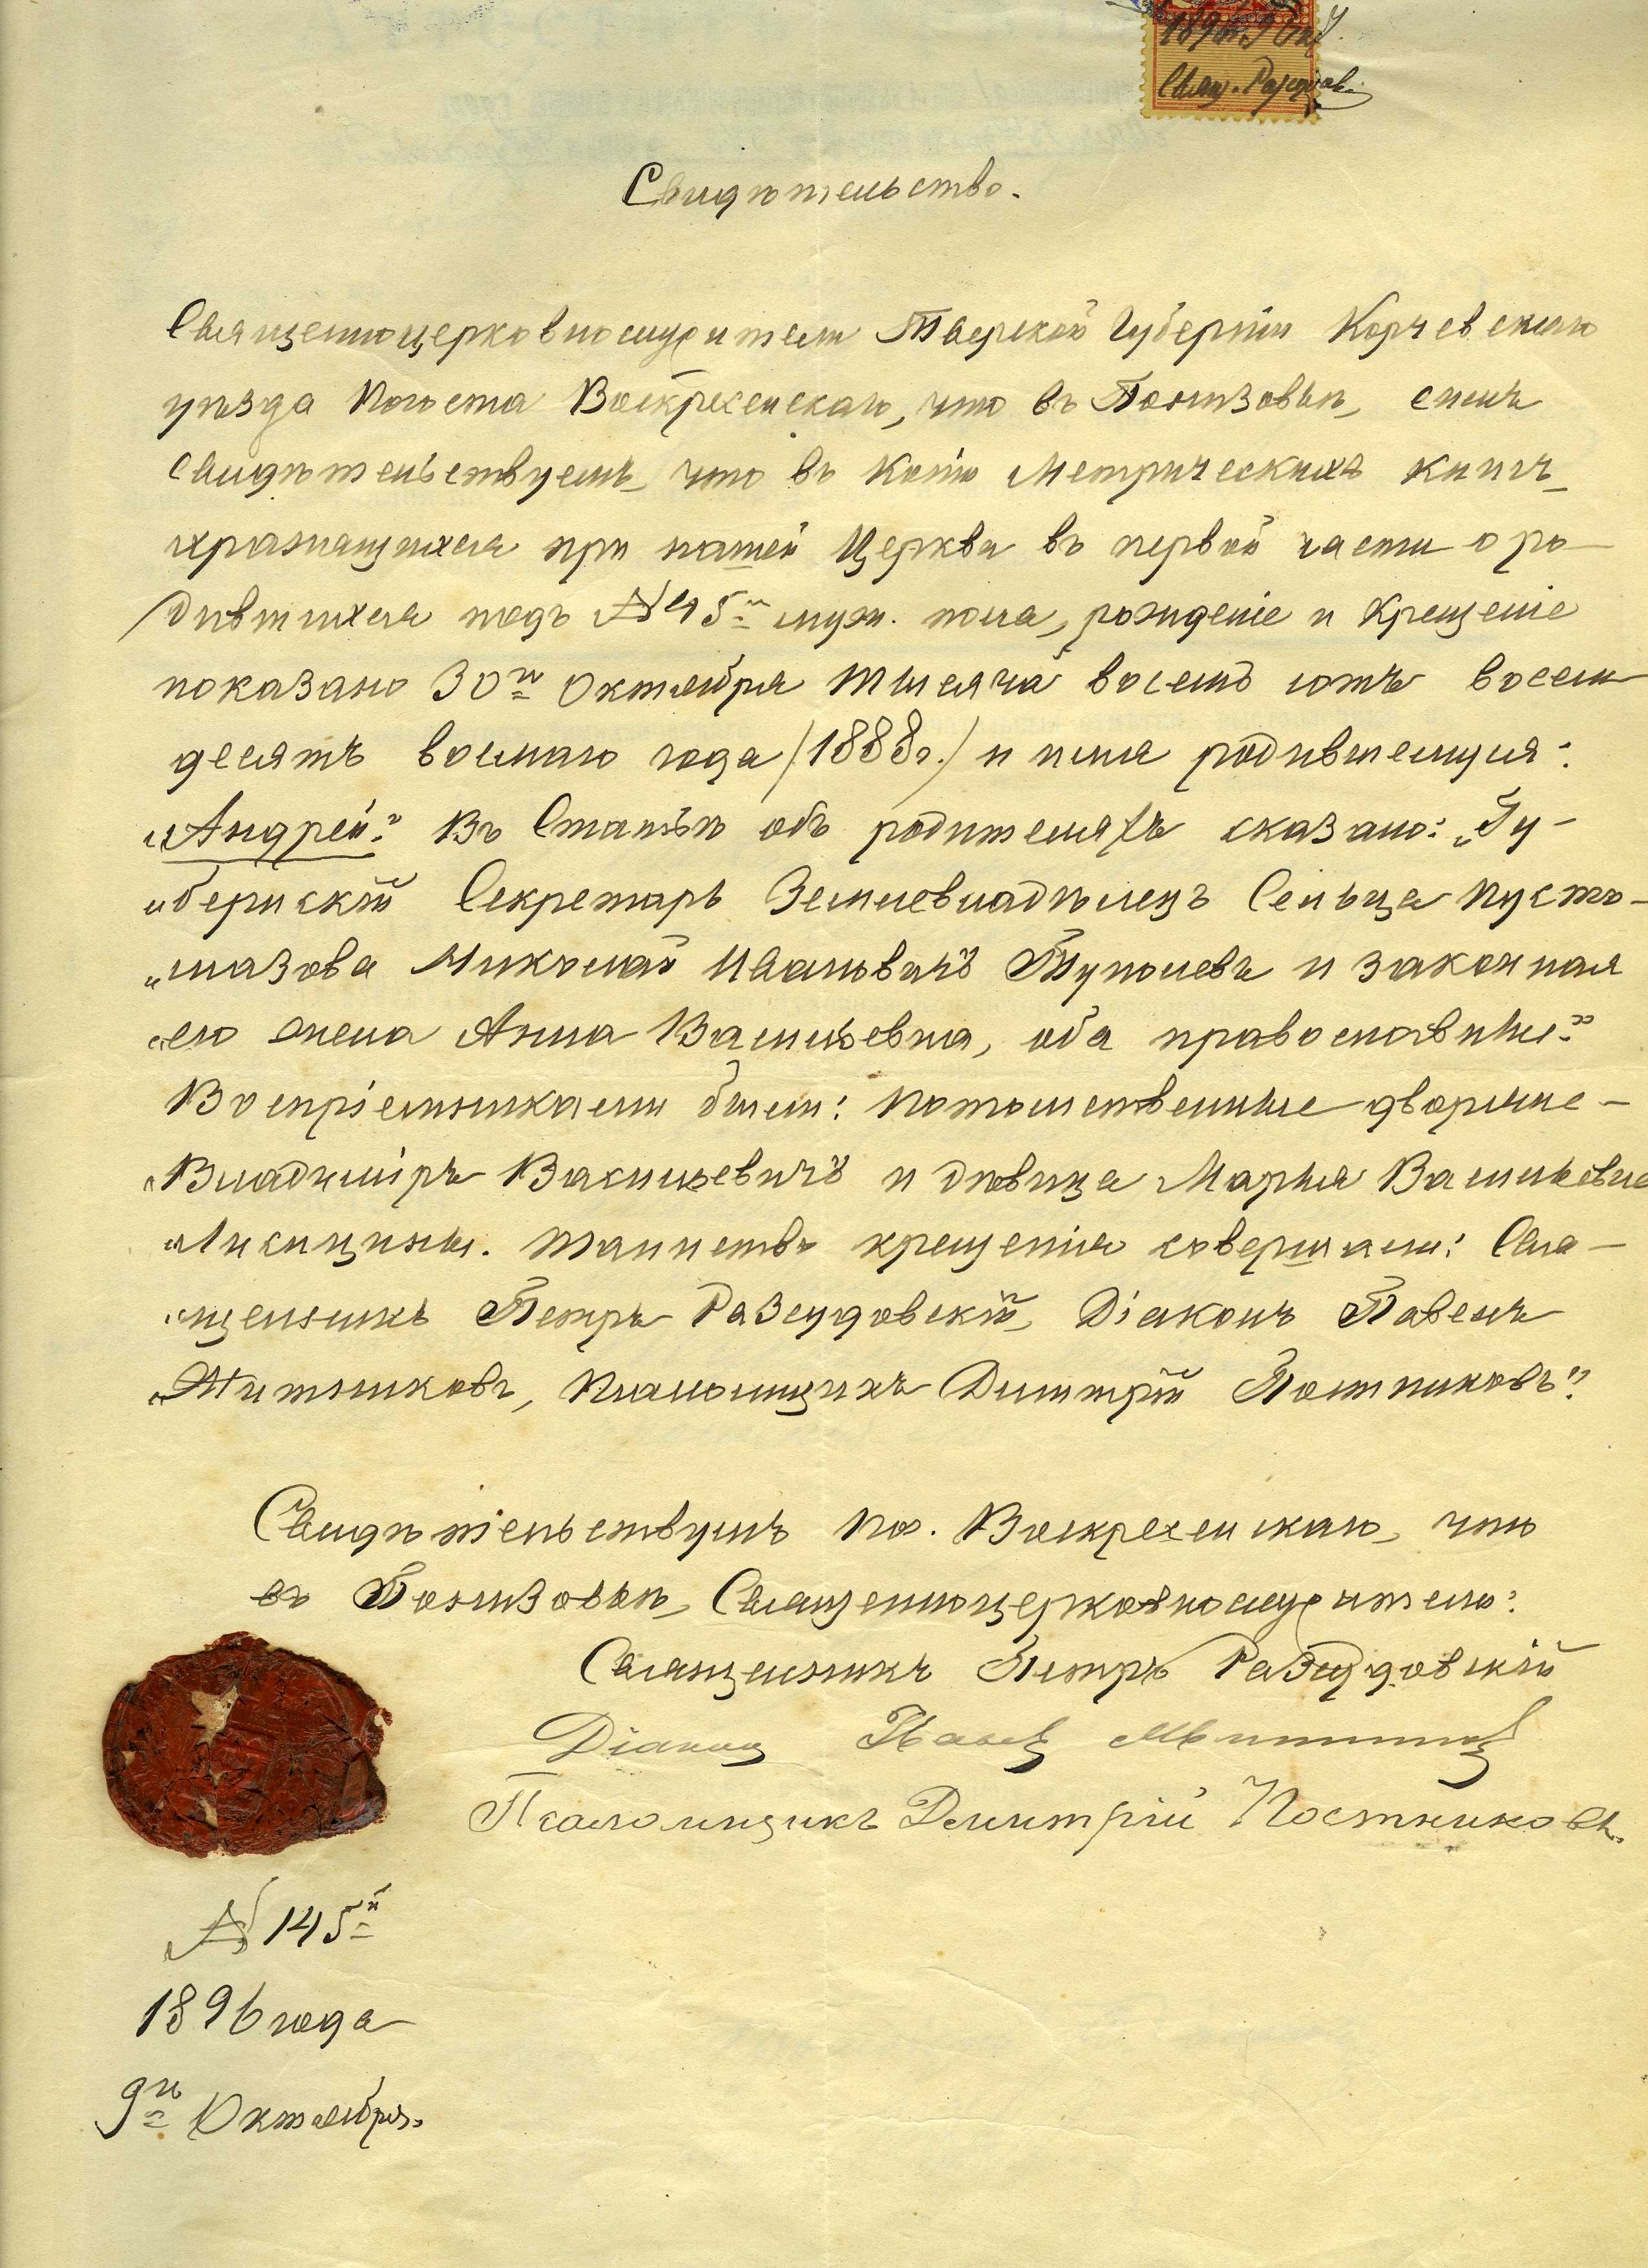 Свящ. Разсудовскій
Свидѣтельство.
Священноцерковнослужители Тверской Губерніи Корчевскаго
уѣзда Погоста Воскресенскаго, что въ Понизовьи, симъ
свидѣтельствуемъ, что въ копіи Метрическихъ книгъ,
хранящихся при нашей Церкви въ первой части о ро-
дившихся подъ № 45й муж. пола, рожденіе и Крещеніе
показано 30го Октября тысяча восемь сотъ восемь
десятъ восьмаго года /1888г./ и имя родившемуся:
„Андрей". Въ Статьѣ объ родителяхъ сказано: „Гу-
„бернскій Секретарь Землевладѣлецъ Сельца Пусто-
„мазова Николай Ивановичъ Туполевъ и законная
„его жена Анна Васильевна, оба православные".
Воспріемниками были: Потомственные дворяне-
„Владиміръ Васильевичъ и дѣвица Марья Васильевна
„Лисицины. Таинство крещенія совершали: Свя-
„щенникъ Петръ Разсудовскій, Діаконъ Павелъ
Псаломщикъ Димитрій Постниковъ".
Свидѣтельствуемъ Пог. Воскресенскаго, что
въ Понизовьи, Священноцерковнослужители:
Священникъ Петръ Разсудовскій
Діаконъ Павелъ
Псаломщикъ Димитрій Постниковъ.
№ 145й
1896 года
9го Октября.